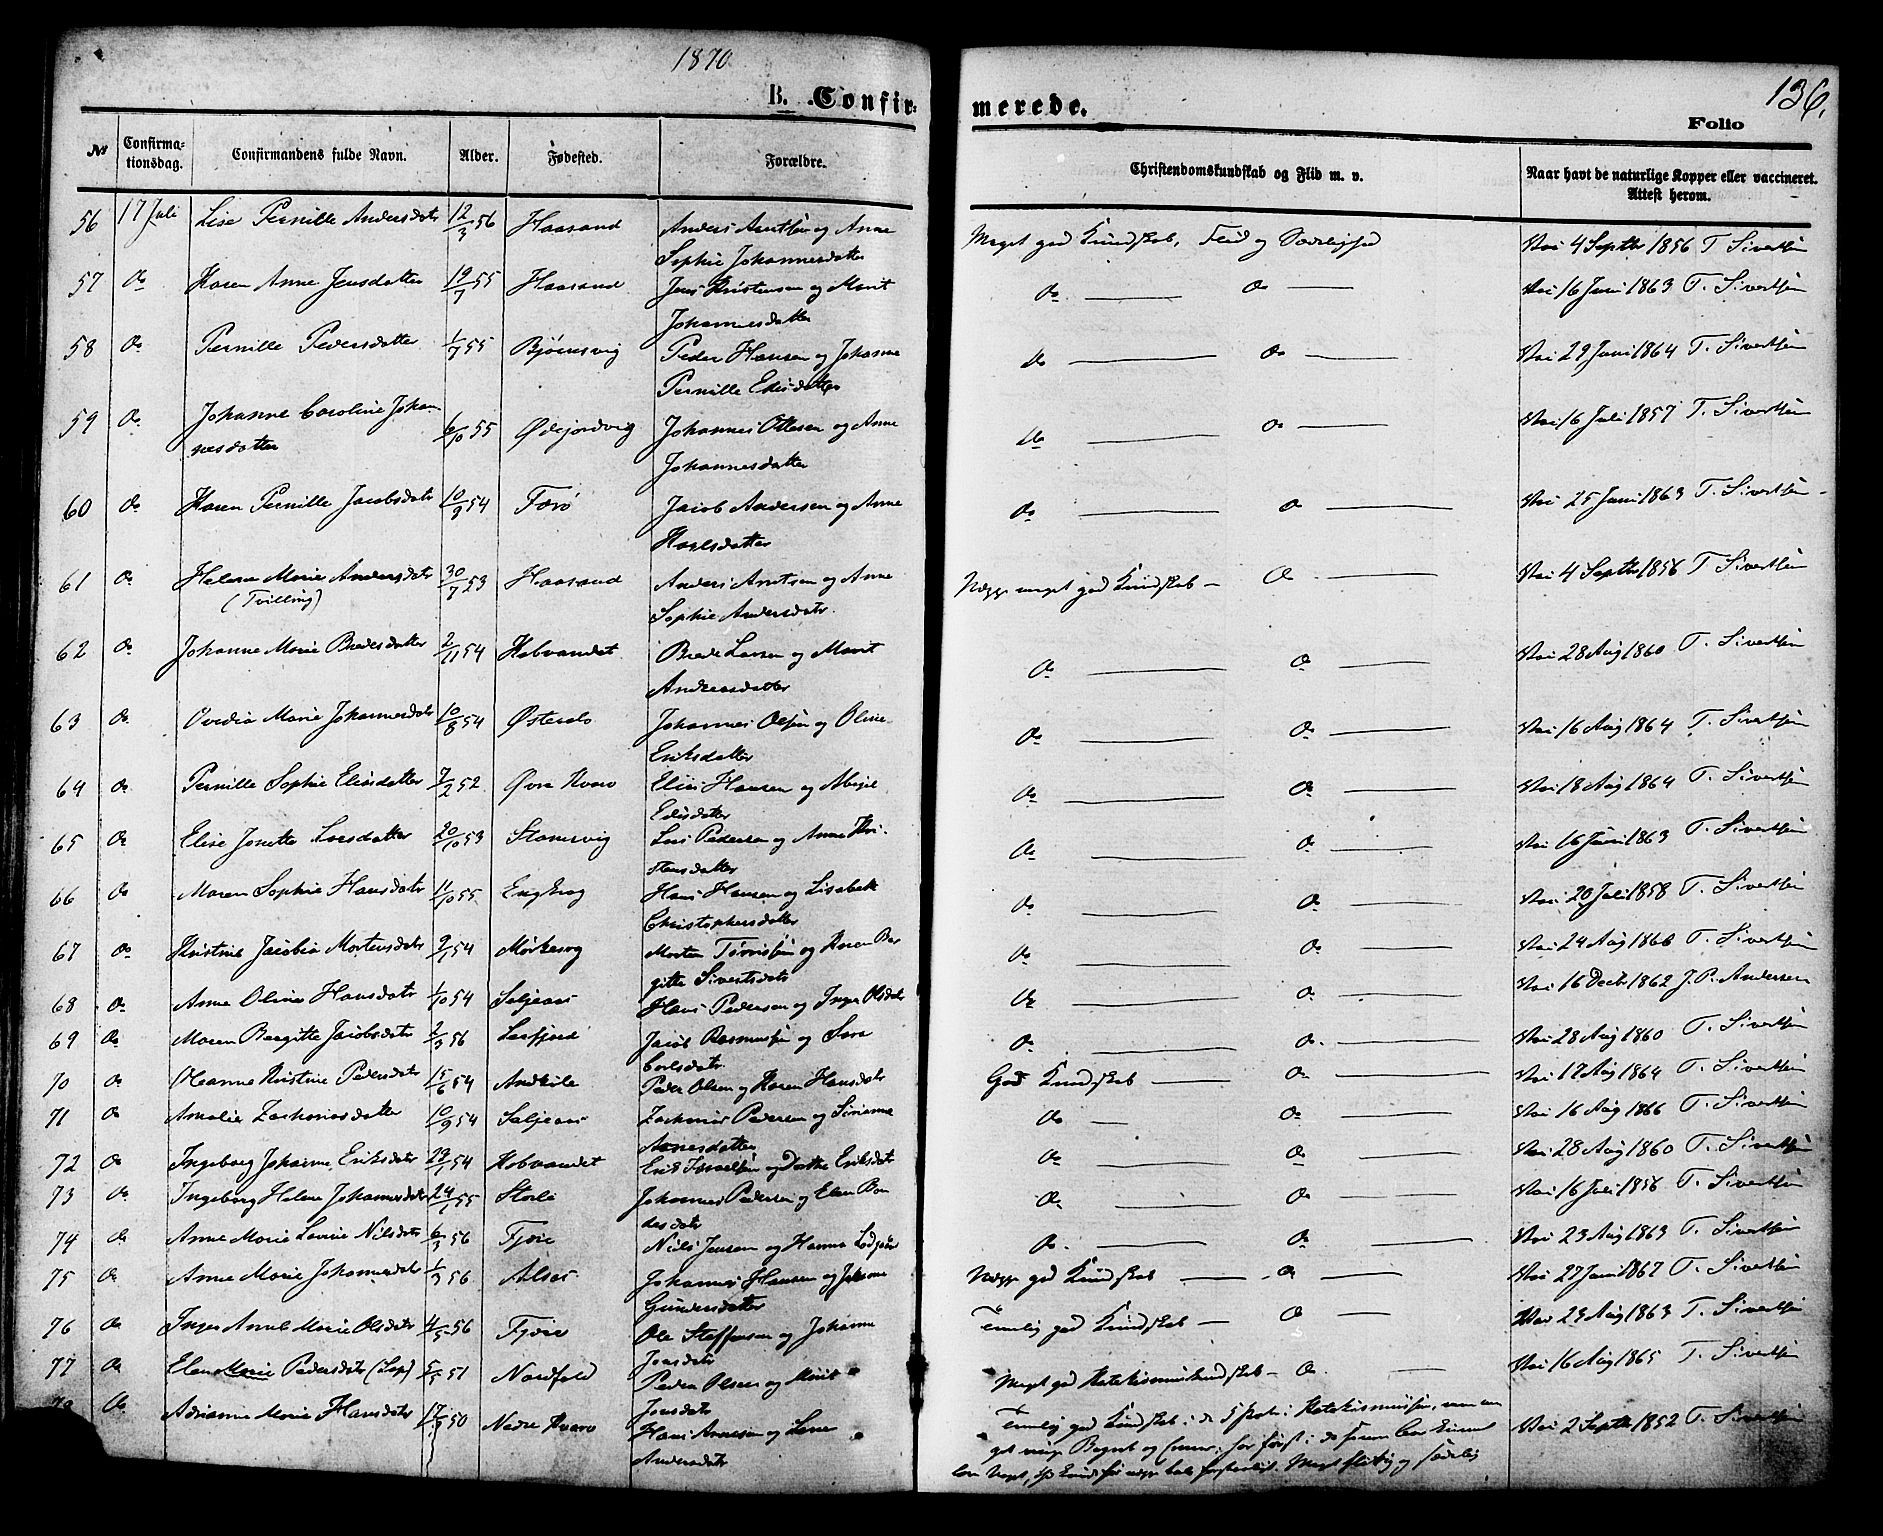 1870
136.
B. Confirmerede.
Folio
No
Confirmationsdag.
Confirmandens fulde Navn.
Alder.
Fødested.
Forældre.
Christendomskundskab og Flid m. v.
Naar havt de naturlige Kopper eller vaccineret. Attest herom.
56 17 Juli Lise Pernille Andersdatr 12/3 56 Haasand Anders Arntsen og Anne Meget god Kundskab, Flid og Sædelighed Vac 4 Septbr 1856 T. Sivertsen
Sophie Johannesdatter
57 Do Karen Anne Jensdatter 19/7 55 Haasand Jens Kristensen og Marit Do Do Vac 16 Juni 1863 T. Sivertsen
Johannesdatter
58 Do Pernille Pedersdatter 1/7 55 Bjørnsvig Peder Hansen og Johanne Do Do Vac 29 Juni 1864 T. Sivertsen
Pernille Edisdatter
59 Do Johanne Caroline Johan 6/10 55 Ødejordvig Johannes Ottesen og Anne Do Do Vac 16 Juli 1857 T. Sivertsen
nesdatter Johannesdatter
60 Do Karen Pernille Jacobsdatr 10/9 54 Færø Jacob Andersen og Anne Do Do Vac 25 Juni 1863 T. Sivertsen
Karlsdatter
61 Do Helene Marie Andersdatr 30/7 53 Haasand Anders Arntsen og Anne meget god Kundskab Do Vac 4 Septbr 1856 T. Sivertsen
(Tvilling) Sophie Andersdatr.
62 Do Johanne Marie Bredesdatter 2/11 54 Kobvandet Brede Larsen og Marit Do Do Vac 28 Aug 1860 T. Sivertsen
Andreasdatter
63 Do Ovedia Marie Johannesdatr 10/8 54 Johannes Olsen og Oline Do Do Vac 16 Aug 1864 T. Sivertsen
Eriksdatter
64 Do Pernille Sophie Elisdatter 7/2 52 Øvre Kvarv Elias Hansen og Abigel Do Do Vac 18 Aug 1864 T. Sivertsen
Edisdatter
65 Do Elise Jonette Larsdatter 20/10 53 Stamsvig Lars Pedersen og Anne Kri- Do Do Vac 16 Juni 1863 T. Sivertsen
stensdatter
66 Do Maren Sophie Hansdatr 11/10 55 Hans Hansen og Lisabeth Do Do Vac 20 Juli 1858 T. Sivertsen
Christophersdatter
67 Do Kristine Jacobia Mortensdatr 9/1 54 Mørkesvig Morten Tørrissen og Karen Ber Do Vac 24 Aug 1866 T. Sivertsen
gitte Sivertsdatr
68 Do Anne Oline Hansdatr 1/10 54 Hans Pedersen og Inger Olsdatr Do Do Vac 16 Decbr 1862 J. P. Andersen
69 Do Maren Bergitte Jacobsdatr 2/3 56 Leifjord Jacob Rasmussen og Sara Do Do Vac 28 Aug 1860 T. Sivertsen
Carlsdatr
70 Do Oleanna Kristine Pedersdatr 15/6 54 Andkile Peder Olsen og Karen Hansdatr God Kundskab Do Vac 17 Aug 1864 T. Sivertsen
71 Do Amalie Zachariasdatter 10/9 54 Zacharias Pedersen og Do Do Vac 16 Aug 1866 T. Sivertsen
Arnesdatter
72 Do Ingeborg Johanne Eriksdatr 54 Kobvandet Erik Israelsen og Eriksdatr Do Do Vac 28 Aug 1860 T. Sivertsen
73 Do Ingeborg Helene Johannesdatr 24/1 55 Storli Johannes Pedersen og Elen Bar Do Do Vac 16 Juli 1856 T. Sivertsen
desdatr
74 Do Anne Marie Lavine Nilsdatr 6/3 56 Fjære Niels Jensen og Hanna Do Do Vac 23 Aug 1863 T. Sivertsen
75 Do Anne Marie Johannesdatr 1/3 56 Alsos Johannes Hansen og Johanne god Kundskab Do Vac 27 Juni 1867 T. Sivertsen
Gundersdatter
76 Do Inger Anne Marie Olsdatr 4/5 56 Fjære Ole Steffensen og Johanne Temlig god Kundskab Do Vac 23 Aug 1863 T. Sivertsen
Jonsdatr
77 Do Elen Marie Pedersdatr (Lap) 5/5 51 Nordfold Peder Olsen og Marit Meget god Katekismuskundskab Do Vac 16 Aug 1865 T. Sivertsen
Jonsdatr
Do Adrianne Marie Hansdatr 17/3 50 Nedre Kvarv Hans Arnesen og Lene Temlig god Kundskab i de 5 Parter i Katekismusen, Vac 2 Septbr 1852 T. Sivertsen
Andersdatr Meget flittig og sædelig